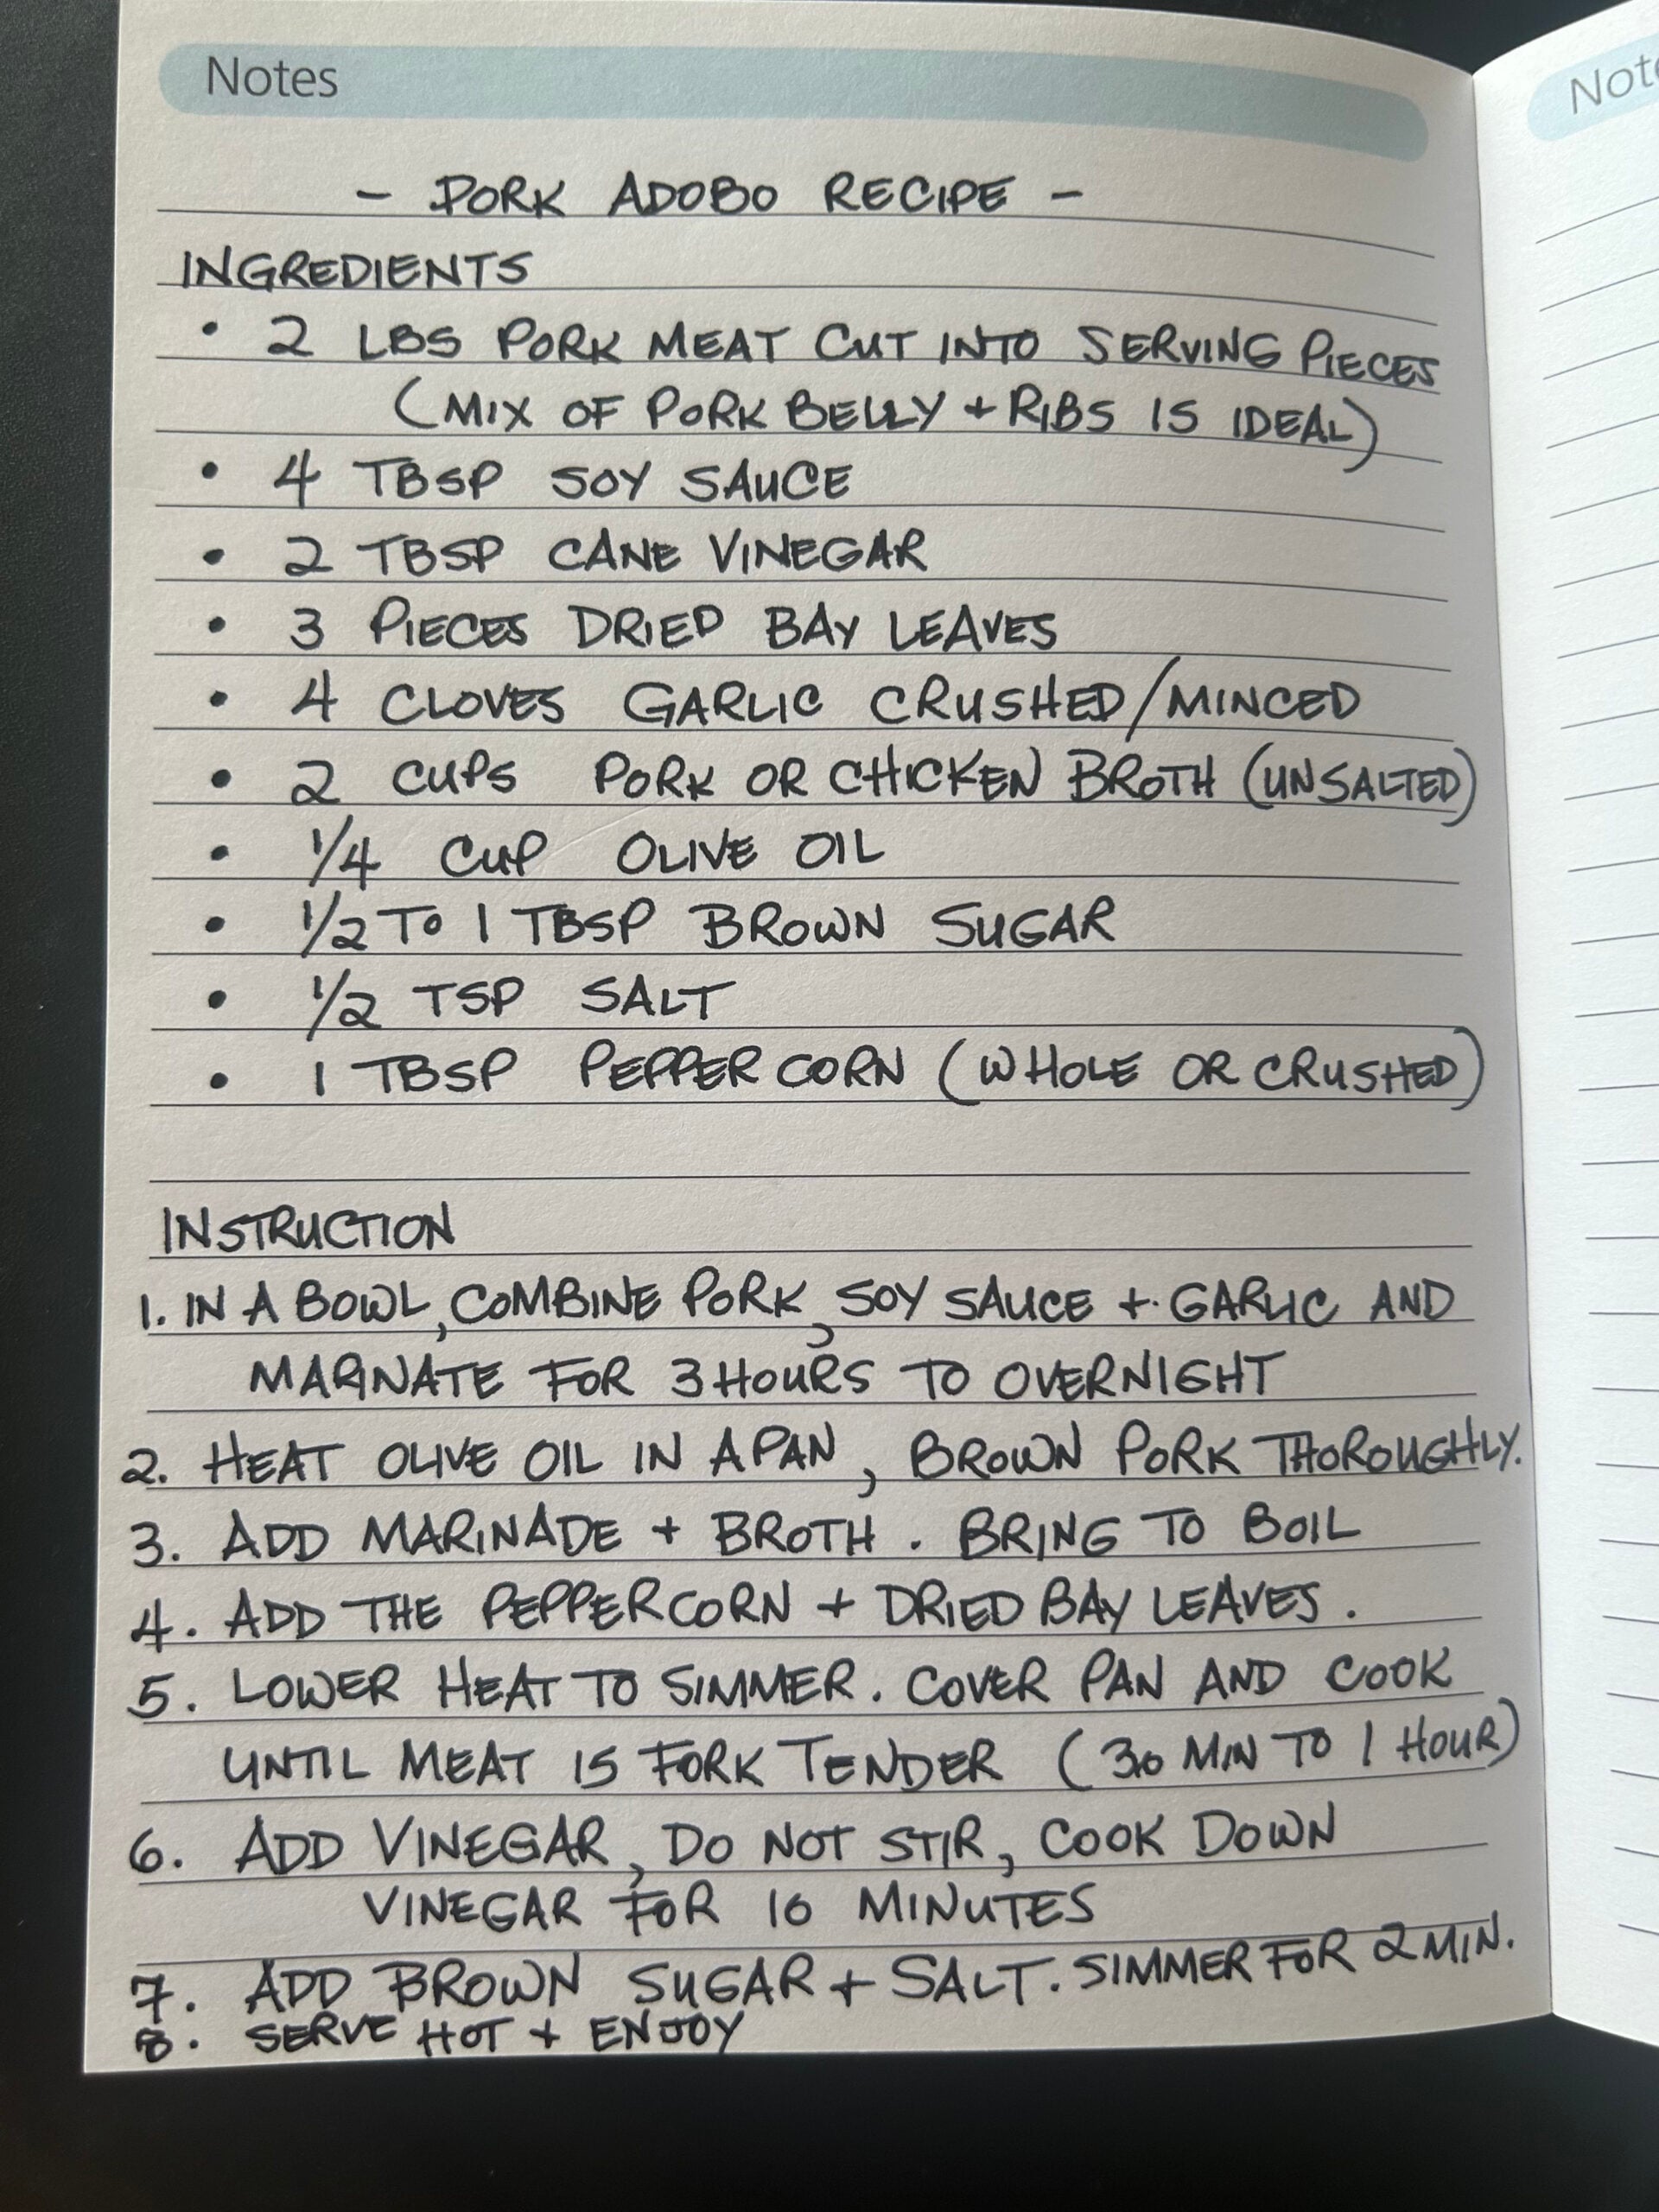 Notes
- PORK ADOBO RECIPE -
INGREDIENTS
• 2 LBS PORK MEAT CUT INTO SERVING PIECES
(MIX OF PORK BELLY + RIBS IS IDEAL)
• 4 TBSP SOY SAUCE
• 2 TBSP CANE VINEGAR
• 3 PIECES DRIED BAY LEAVES
• 4 CLOVES GARLIC CRUSHED/MINCED
• 2 CUPS PORK OR CHICKEN BROTH (UNSALTED)
• 1/4 CUP OLIVE OIL
• 1/2 TO 1 TBSP BROWN SUGAR
• 1/2 TSP SALT
• 1 TBSP PEPPERCORN (WHOLE OR CRUSHED)
INSTRUCTION
1. IN A BOWL, COMBINE PORK, SOY SAUCE + GARLIC AND
MARINATE FOR 3 HOURS TO OVERNIGHT
2. HEAT OLIVE OIL IN A PAN, BROWN PORK THOROUGHLY.
3. ADD MARINADE + BROTH. BRING TO BOIL
4. ADD THE PEPPERCORN + DRIED BAY LEAVES.
5. LOWER HEAT TO SIMMER. COVER PAN AND COOK
UNTIL MEAT IS FORK TENDER (30 MIN TO 1 HOUR)
6. ADD VINEGAR, DO NOT STIR, COOK DOWN
VINEGAR FOR 10 MINUTES
7. ADD BROWN SUGAR + SALT. SIMMER FOR 2 MIN.
8. SERVE HOT + ENJOY